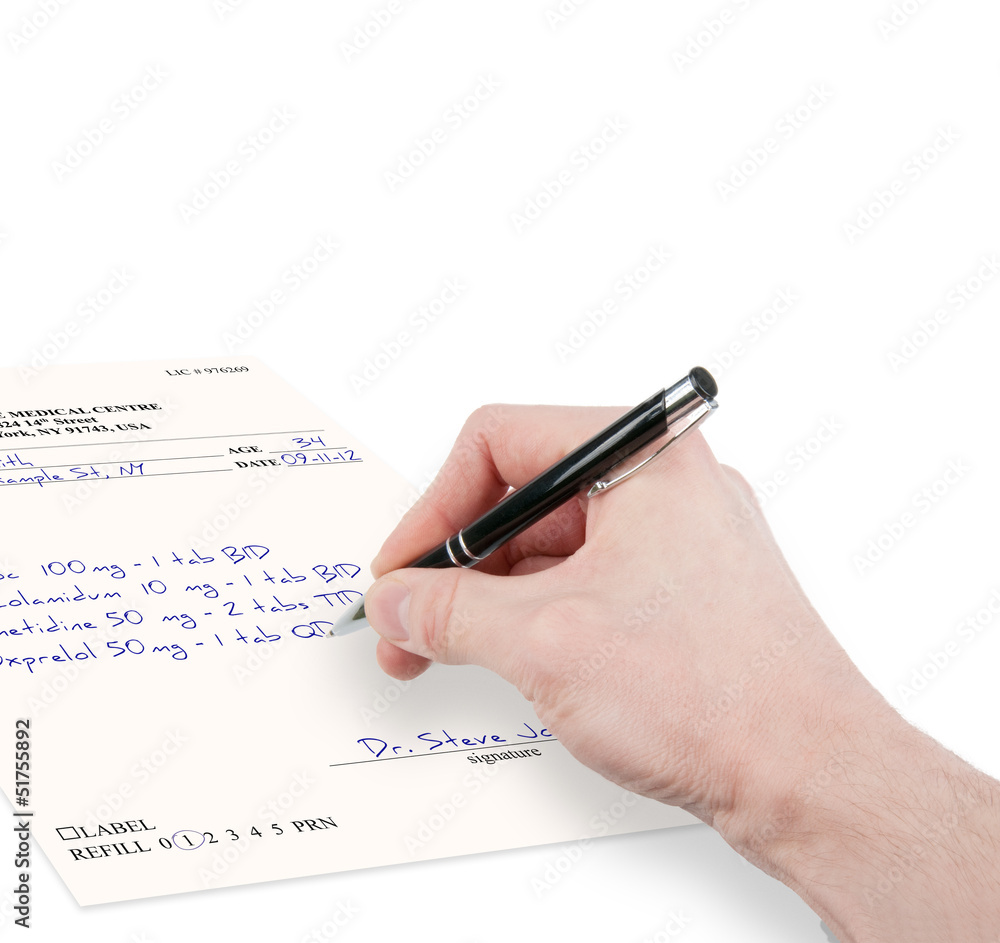 LIC # 976269
E MEDICAL CENTRE
324 14th Street
York, NY 91743, USA
ith AGE 34
xample St, NY DATE 09-11-12
oc 100 mg - 1 tab BID
olamidum 10 mg - 1 tab BID
metidine 50 mg - 2 tabs TID
oxprelol 50 mg - 1 tab QD
Dr. Steve Jo
signature
LABEL
REFILL 0 1 2 3 4 5 PRN
Adobe Stock | #51755892